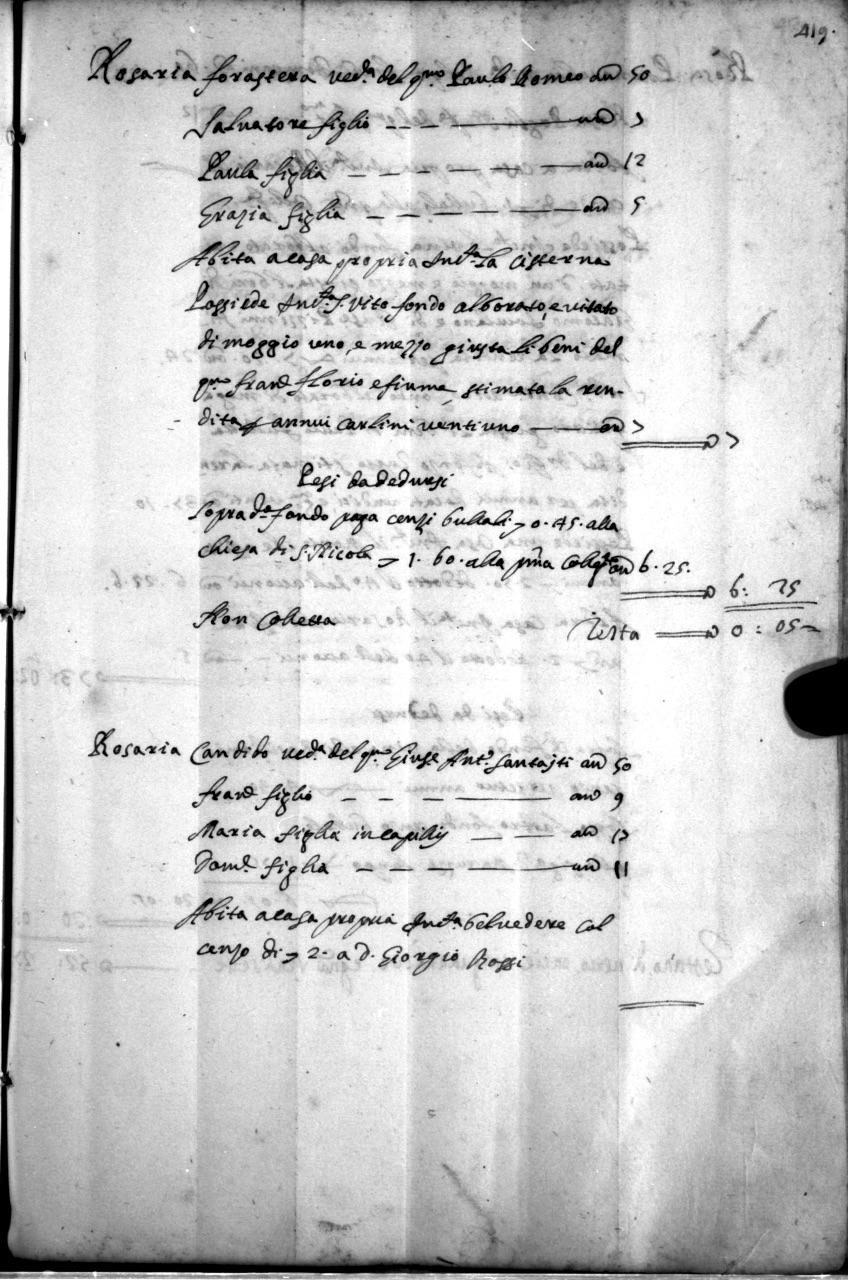 419.
Rosaria forastera ved.ª del q.m Paulo Romeo an 50
Salvatore figlio — — an 7
Paula figlia — — — — — an 12
Grazia figlia — — — — — an 5
Abita a casa propria Int.ª La Cisterna
Possiede Int.ª S. Vito fondo alborato, e vitato
di moggio uno, e mezzo giusta li beni del
q.m Fran.co Florio e fiume, stimata la ren-
dita annui carlini ventuno — on 7
7
Pesi da dedursi
Soprad.º fondo paga censi bullali 0.45. alla
chiesa di S. Nicola 1.60. alla on 6.25.
6: 25
Non Colletta
Resta 0: 05
Rosaria Candido ved.ª del q.m Gius.e Ant.º Santojti an 50
Fran.co figlio — — — — an 9
Maria figlia in capillis — — an 17
Dom.ca figlia — — — — — an 11
Abita a casa propria Int.ª Belvedere col
censo di 2. a D. Giorgio Rossi